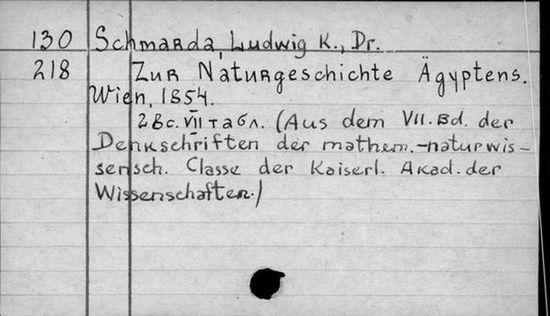 130 Schmarda, Ludwig K., Dr.
218 Zur Naturgeschichte Ägyptens.
Wien, 1854.
28 c. VII табл. (Aus dem VII. Bd. der
Denkschriften der mathem.-naturwis-
sensch. Classe der Kaiserl. Akad. der
Wissenschaften.)